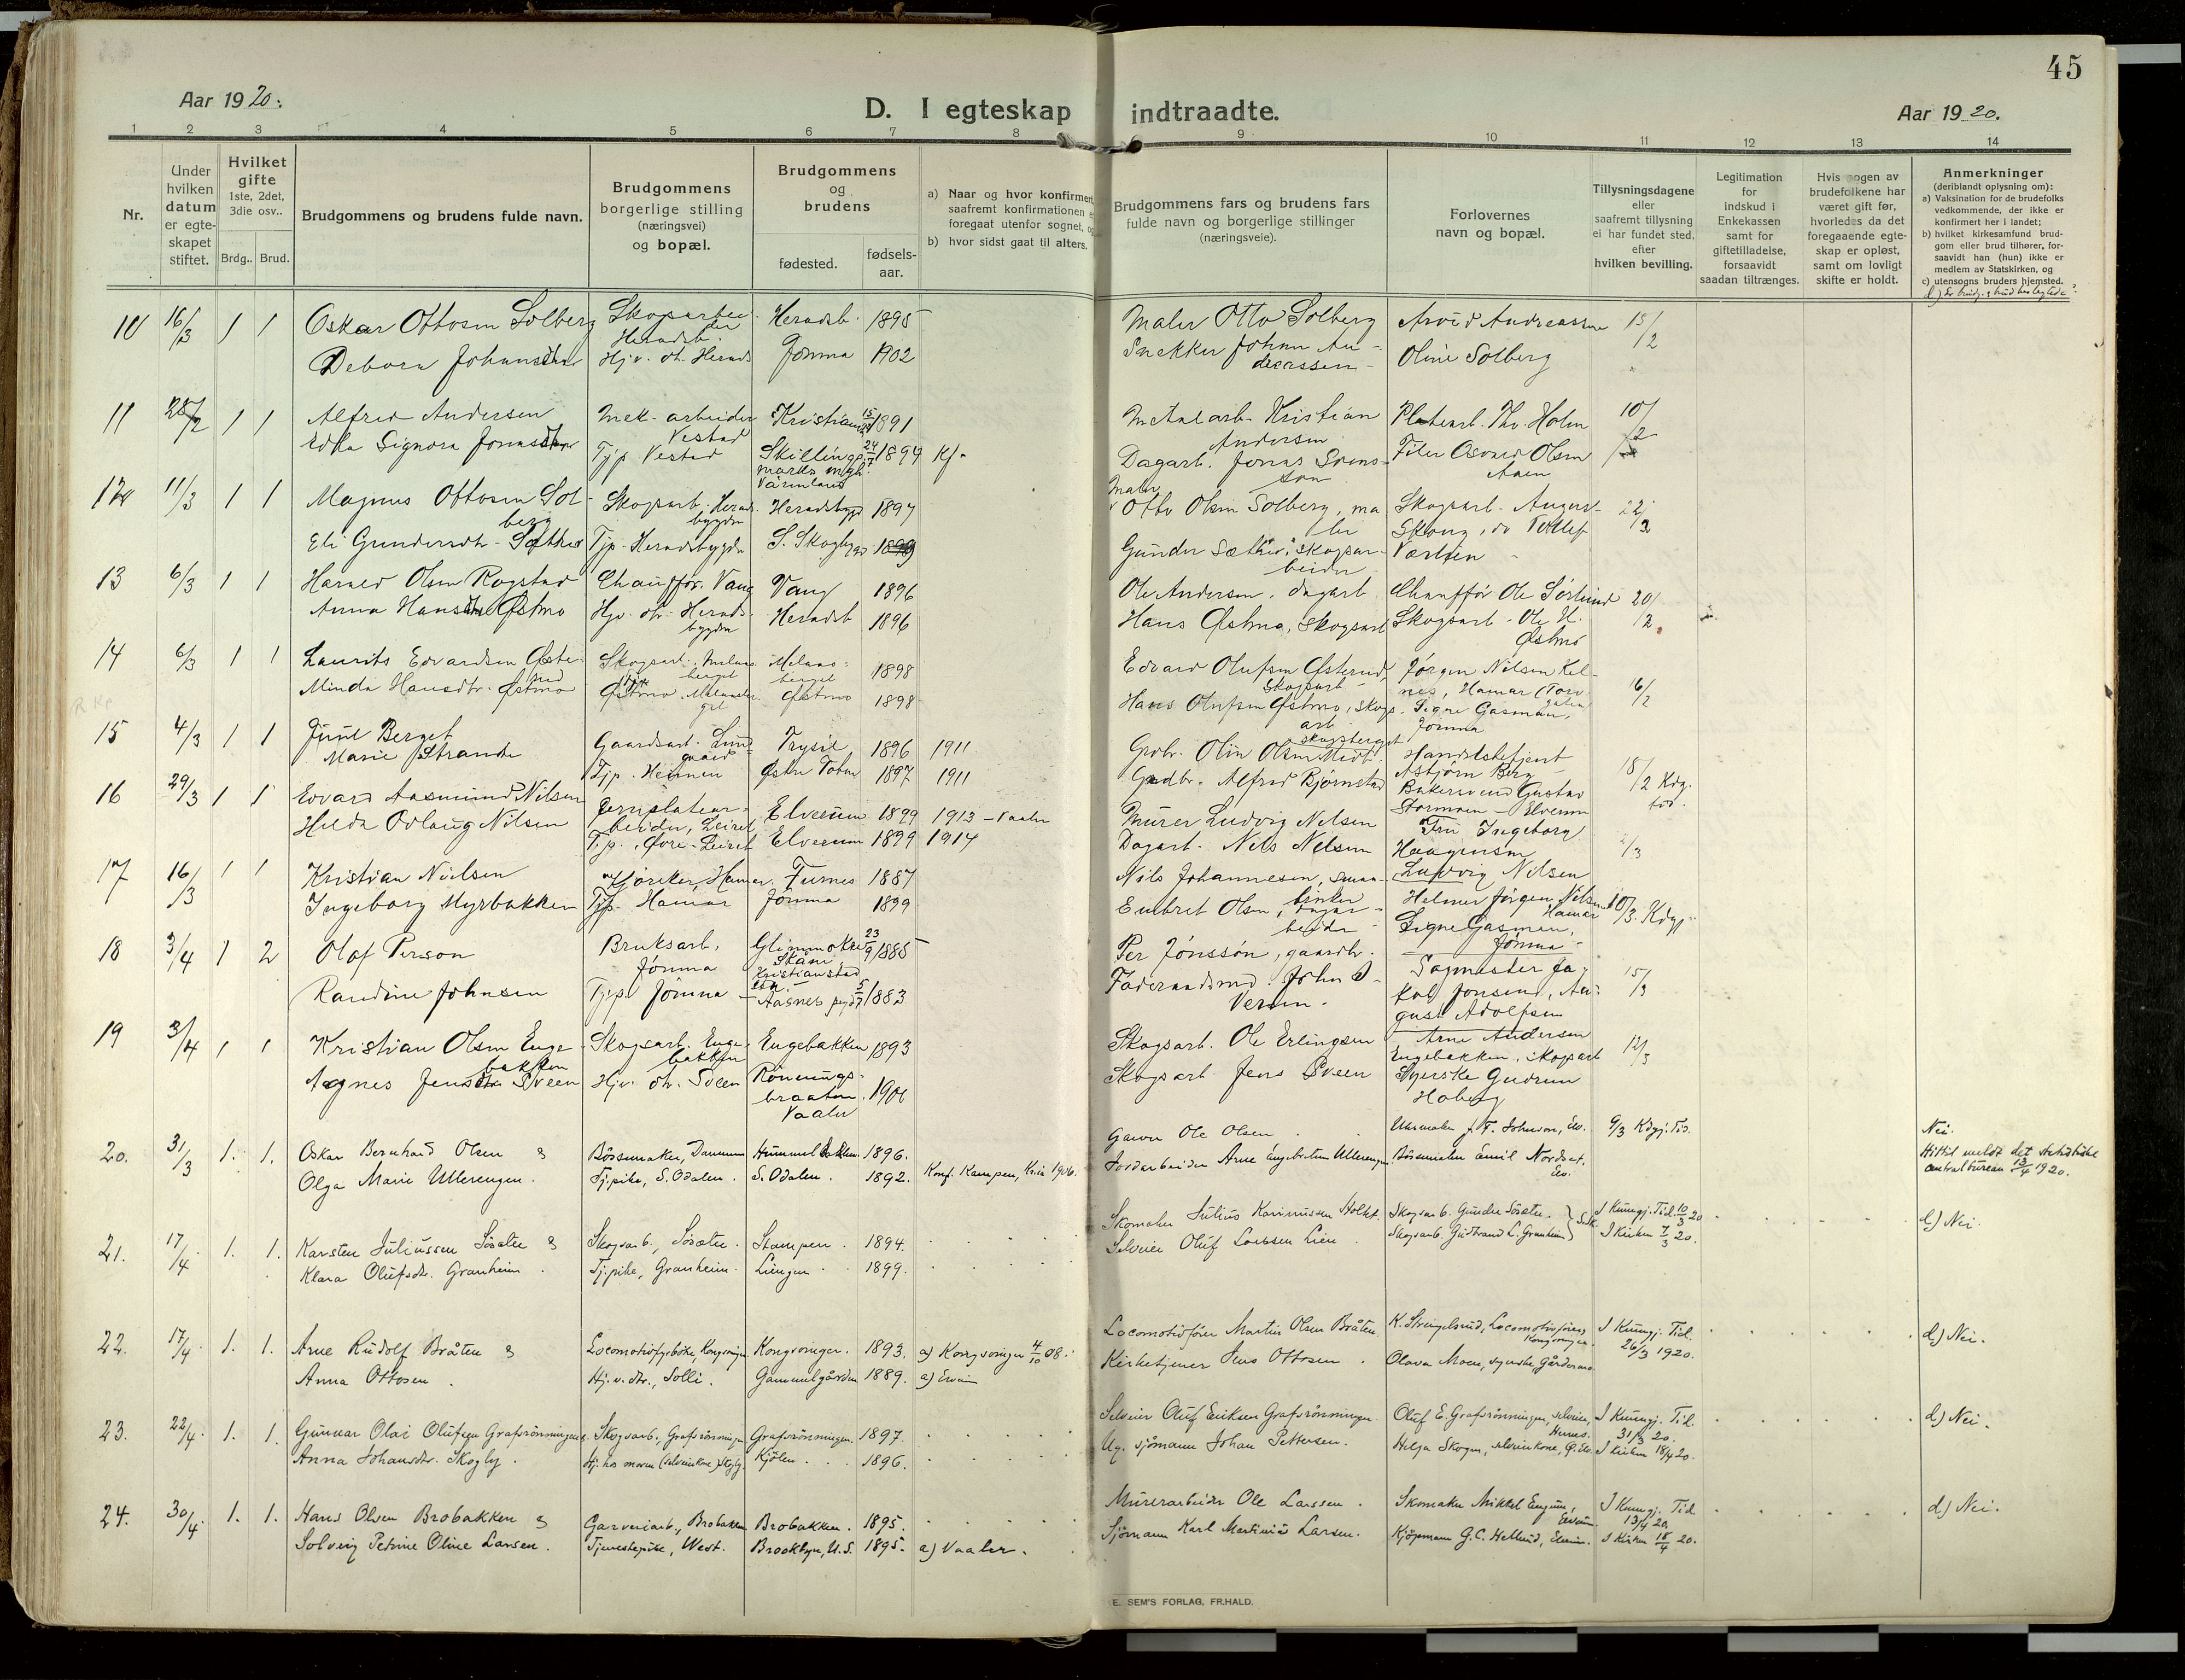 45
Aar 1920.
D. I egteskap indtraadte.
Aar 1920.
1 2 3 4 5 6 7 8 9 10 11 12 13 14
Nr.
Under hvilken datum er egte-skapet stiftet.
Hvilket gifte 1ste, 2det, 3die osv..
Brdg.. Brud.
Brudgommens og brudens fulde navn.
Brudgommens borgerlige stilling (næringsvei) og bopæl.
Brudgommens og brudens
fødested.
fødsels-aar.
a) Naar og hvor konfirmert
saafremt konfirmationen
foregaat utenfor sognet,
b) hvor sidst gaat til alters.
Brudgommens fars og brudens fars
fulde navn og borgerlige stillinger
(næringsveie).
Forlovernes
navn og bopæl.
Tillysningsdagene
eller
saafremt tillysning
ei har fundet sted,
efter
hvilken bevilling.
Legitimation
for
indskud i
Enkekassen
samt for
giftetilladelse,
forsaavidt
saadan tiltrænges.
Hvis nogen av
brudefolkene har
været gift før,
hvorledes da det
foregaaende egte-
skap er opløst,
samt om lovligt
skifte er holdt.
Anmerkninger
(deriblandt oplysning om):
a) Vaksination for de brudefolks
vedkommende, der ikke er
konfirmert her i landet;
b) hvilket kirkesamfund brud-
gom eller brud tilhører, for-
saavidt han (hun) ikke er
medlem av Statskirken, og
c) utensogns bruders hjemsted.
10 16/3 1 1 Oskar Ottosen Solberg Skogsarbeider Heradsb. Heradsb. 1895 Maler Otto Solberg Arvid Andreassen 15/2
Debora Johansdtr Hjv. dt. Herads Jømna 1902 Snekker Johan Andreassen Oline Solberg
11 28/2 1 1 Alfred Andersen Mek. arbeider Vestad Kristiania 1891 Metalarb. Kristian Andersen Platearb. Thv. Holm 10/2
Edla Signora Jonasdtr Tjp Vestad Skillingsmarks Värmland 24/7 1894 Kf. Dagarb. Jonas Svensson Filer Osvard Olsen
12 11/3 1 1 Magnus Ottosen Solberg Skogsarb. Heradsbygden Heradsbygd 1897 Maler Otto Olsen Solberg, maler Skogsarb. August Skoug, 22/2
Eli Gundersdtr. Sæther Tjp. Heradsbygden S. Skogbygd Gunder Sæther, skogsarbeider
13 6/3 1 1 Harald Olsen Rogstad Chauffør. Vang Vang 1896 Ole Andersen, dagarb. Chauffør Ole Sørlund 20/2
Anna Hansdtr Østmo Hjv. dt. Heradsbygden Heradsb 1896 Hans Østmo, skogsarb Skogsarb. Ole H. Østmo
14 6/3 1 1 Laurits Edvardsen Østerud Skogsarb. Melaasberget Melaasberget 1898 Edvard Olufsen Østerud, skogsarb Jørgen Nilsen Kelnes, Hamar 16/2
Minda Hansdtr. Østmo Østmo, Østmo 1898 Hans Olufsen Østmo, skogsarb. Signe Gasman, Jømna
15 4/3 1 1 Juul Berget Gaardsarb. Trysil 1896 1911 Grdbr. Olin Olsen Handelsbetjent Asbjørn Berg 18/2 Kdgj.
Marie Strande Tjp. Heimen Østre Toten 1897 1911 Gaardbr. Alfred Bjørnstad Bakersvend Gustav Stormoen – Elverum
16 29/3 1 1 Edvard Aasmund Nilsen Jernplatearbeider, Leiret Elverum 1899 1913 – Vaaler Murer Ludvig Nelsen Fru Ingeborg Haagensen
Hilda Ovlaug Nilsen Tjp. Øvre-Leiret Elverum 1899 1914 Dagarb. Nils Nelsen Ludvig Nilsen
17 16/3 1 1 Kristian Nielsen Kjøreker, Hamar. Furnes 1887 Nils Johannesen, smaabruker Helmer Jørgen Nilsen Hamar 10/3. Kdgj.
Ingeborg Myrbakken Tjp. Hamar Jømna 1899 Embret Olsen, dagarbeider Signe Gasman, Jømna
18 3/4 1 2 Olaf Person Bruksarb. Jømna Glimmakra Skåne Kristianstad 23/9 1885 Per Jönssön, gaardbr. Sagmester Jakob Jonsen, August Adolfsen 15/3
Randine Johnsen Tjp. Jømna Aasnes 5/7 1883 Føderaadsmd. John
19 3/4 1 1 Kristian Olsen Engebakken Skogsarb. Engebakken Engebakken 1893 Skogsarb. Ole Erlingsen Arne Andersen Engebakken, skogsarb 12/3
Agnes Jensdtr Sveen Hjv. dt. Sveen Rønningsbraaten Vaaler 1901 Skogsarb Jens Sveen Syerske Gudrun Hoberg
20. 31/3 1. 1. Oskar Bernhard Olsen & Børsemaker, Hummelbakken. 1896. Garver Ole Olsen Urmaker J. F. Johnson, Elv. 9/3 Kdgj. Tid. Nei.
Olga Marie Ullerengen. Tj.pike, S. Odalen. S. Odalen. 1892. Konf. Kampen, Kr.ia 1906. Jordarbeider Arne Engebretsen Ullerengen. Børsemaker Emil Nordset, Elv. Hittil meldt det statistiske centralbureau 13/4 1920.
21. 17/4. 1. 1. Karsten Juliussen Søsæter & Skogsarb., Søsæter. Stampen. 1894. Skomaker Julius Karinussen Holtet. Skogsarb. Gunder Søsæter. I Kungj. Tid. 10/3 20 d.) Nei.
Klara Olufsdtr. Granheim. Tj.pike, Granheim. Liengen. 1899. Selveier Oluf Larssen Lien. Skogsarb. Gudbrand L. Granheim I Kirken 7/3 20.
22. 17/4. 1. 1. Arne Rudolf Bråten & Locomotivfyrbøter, Kongsvinger Kongsvinger. 1893. a) Kongsvinger 4/10 08. Locomotivfører Martin Olsen Bråten. K. Strengelsrud, Locomotivfører, Kongsvinger. I Kungj. Tid. 26/3 1920. d.) Nei.
Anna Ottosen. Hj.v. dtr., Solli. Gammelgården 1889. a) Elverum Kirketjener Jens Ottosen. Olava Moen,
23. 22/4. 1. 1. Gunnar Olai Olufsen Grafsrønningen & Skogsarb., Grafsrønningen Grafsrønningen. 1897. Selveier Oluf Eriksen Grafsrønningen. Oluf E. Grafsrønningen, selveier, Hernes. I Kungj. Tid. 31/3 20. d.) Nei.
Anna Johansdtr. Skogly. Hj. hos moren (selveierkone) Skogly. Kjølen. 1896. Ug. sjømann Johan Pettersen. Helga Skogen, selveierkone, I Kirken 18/4 20.
24. 30/4. 1. 1. Hans Olsen Brobakken & Garveriarb., Brobakken Brobakken. 1895. Murerarbeider Ole Larssen. Skomaker Mikkel Engum, Elverum. I Kungj. Tid. 13/4 20. d) Nei.
Solveig Petrine Oline Larsen. Tjenestepike, West. Brooklyn, U.S. 1895. a) Vaaler. Sjømann Karl Martinius Larsen. Kjøpmann G. C. Hellund, Elverum. I Kirken 18/4 20.
E. SEM'S FORLAG, FR.HALD.